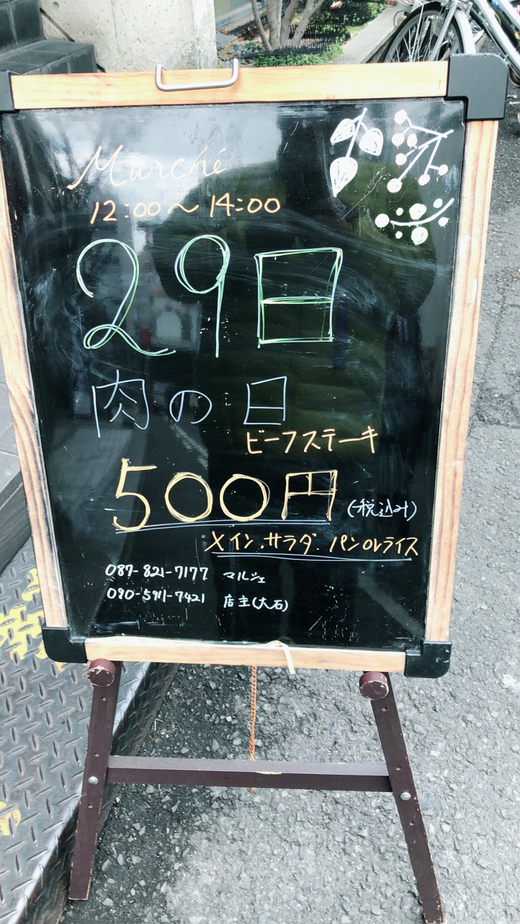 Marché
12:00〜14:00
29日
肉の日
ビーフステーキ
500円(税込み)
メイン.サラダ.パンorライス
087-821-7177 マルシェ
090-5911-7421 店主(大石)